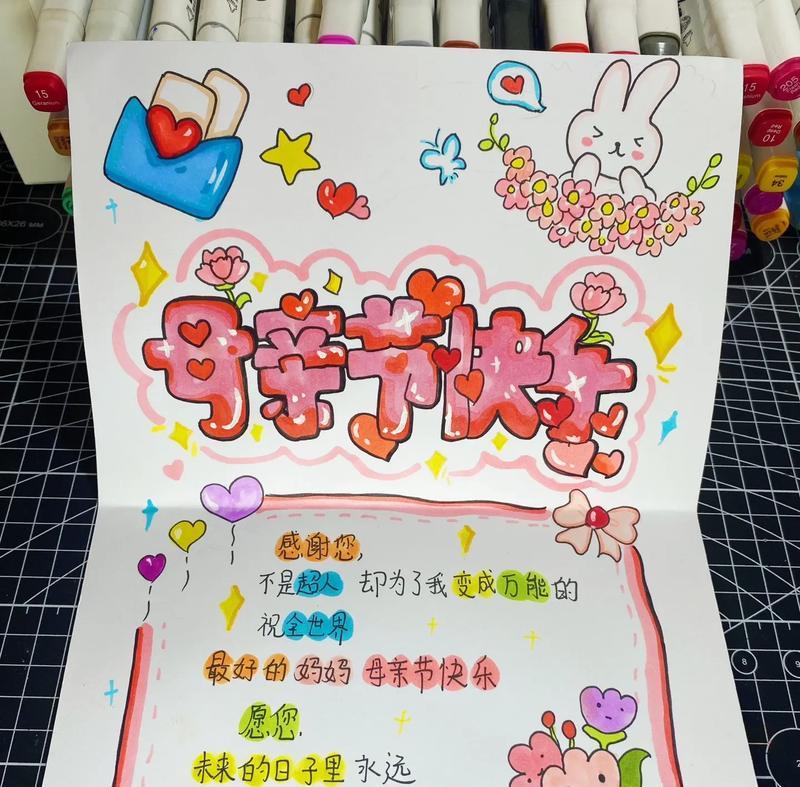 15
Geranium
15
205
10
Deep Red
34
母亲节快乐
感谢您,
不是超人 却为了我变成万能的
祝全世界
最好的妈妈 母亲节快乐
愿您.
未来的日子里 永远
8